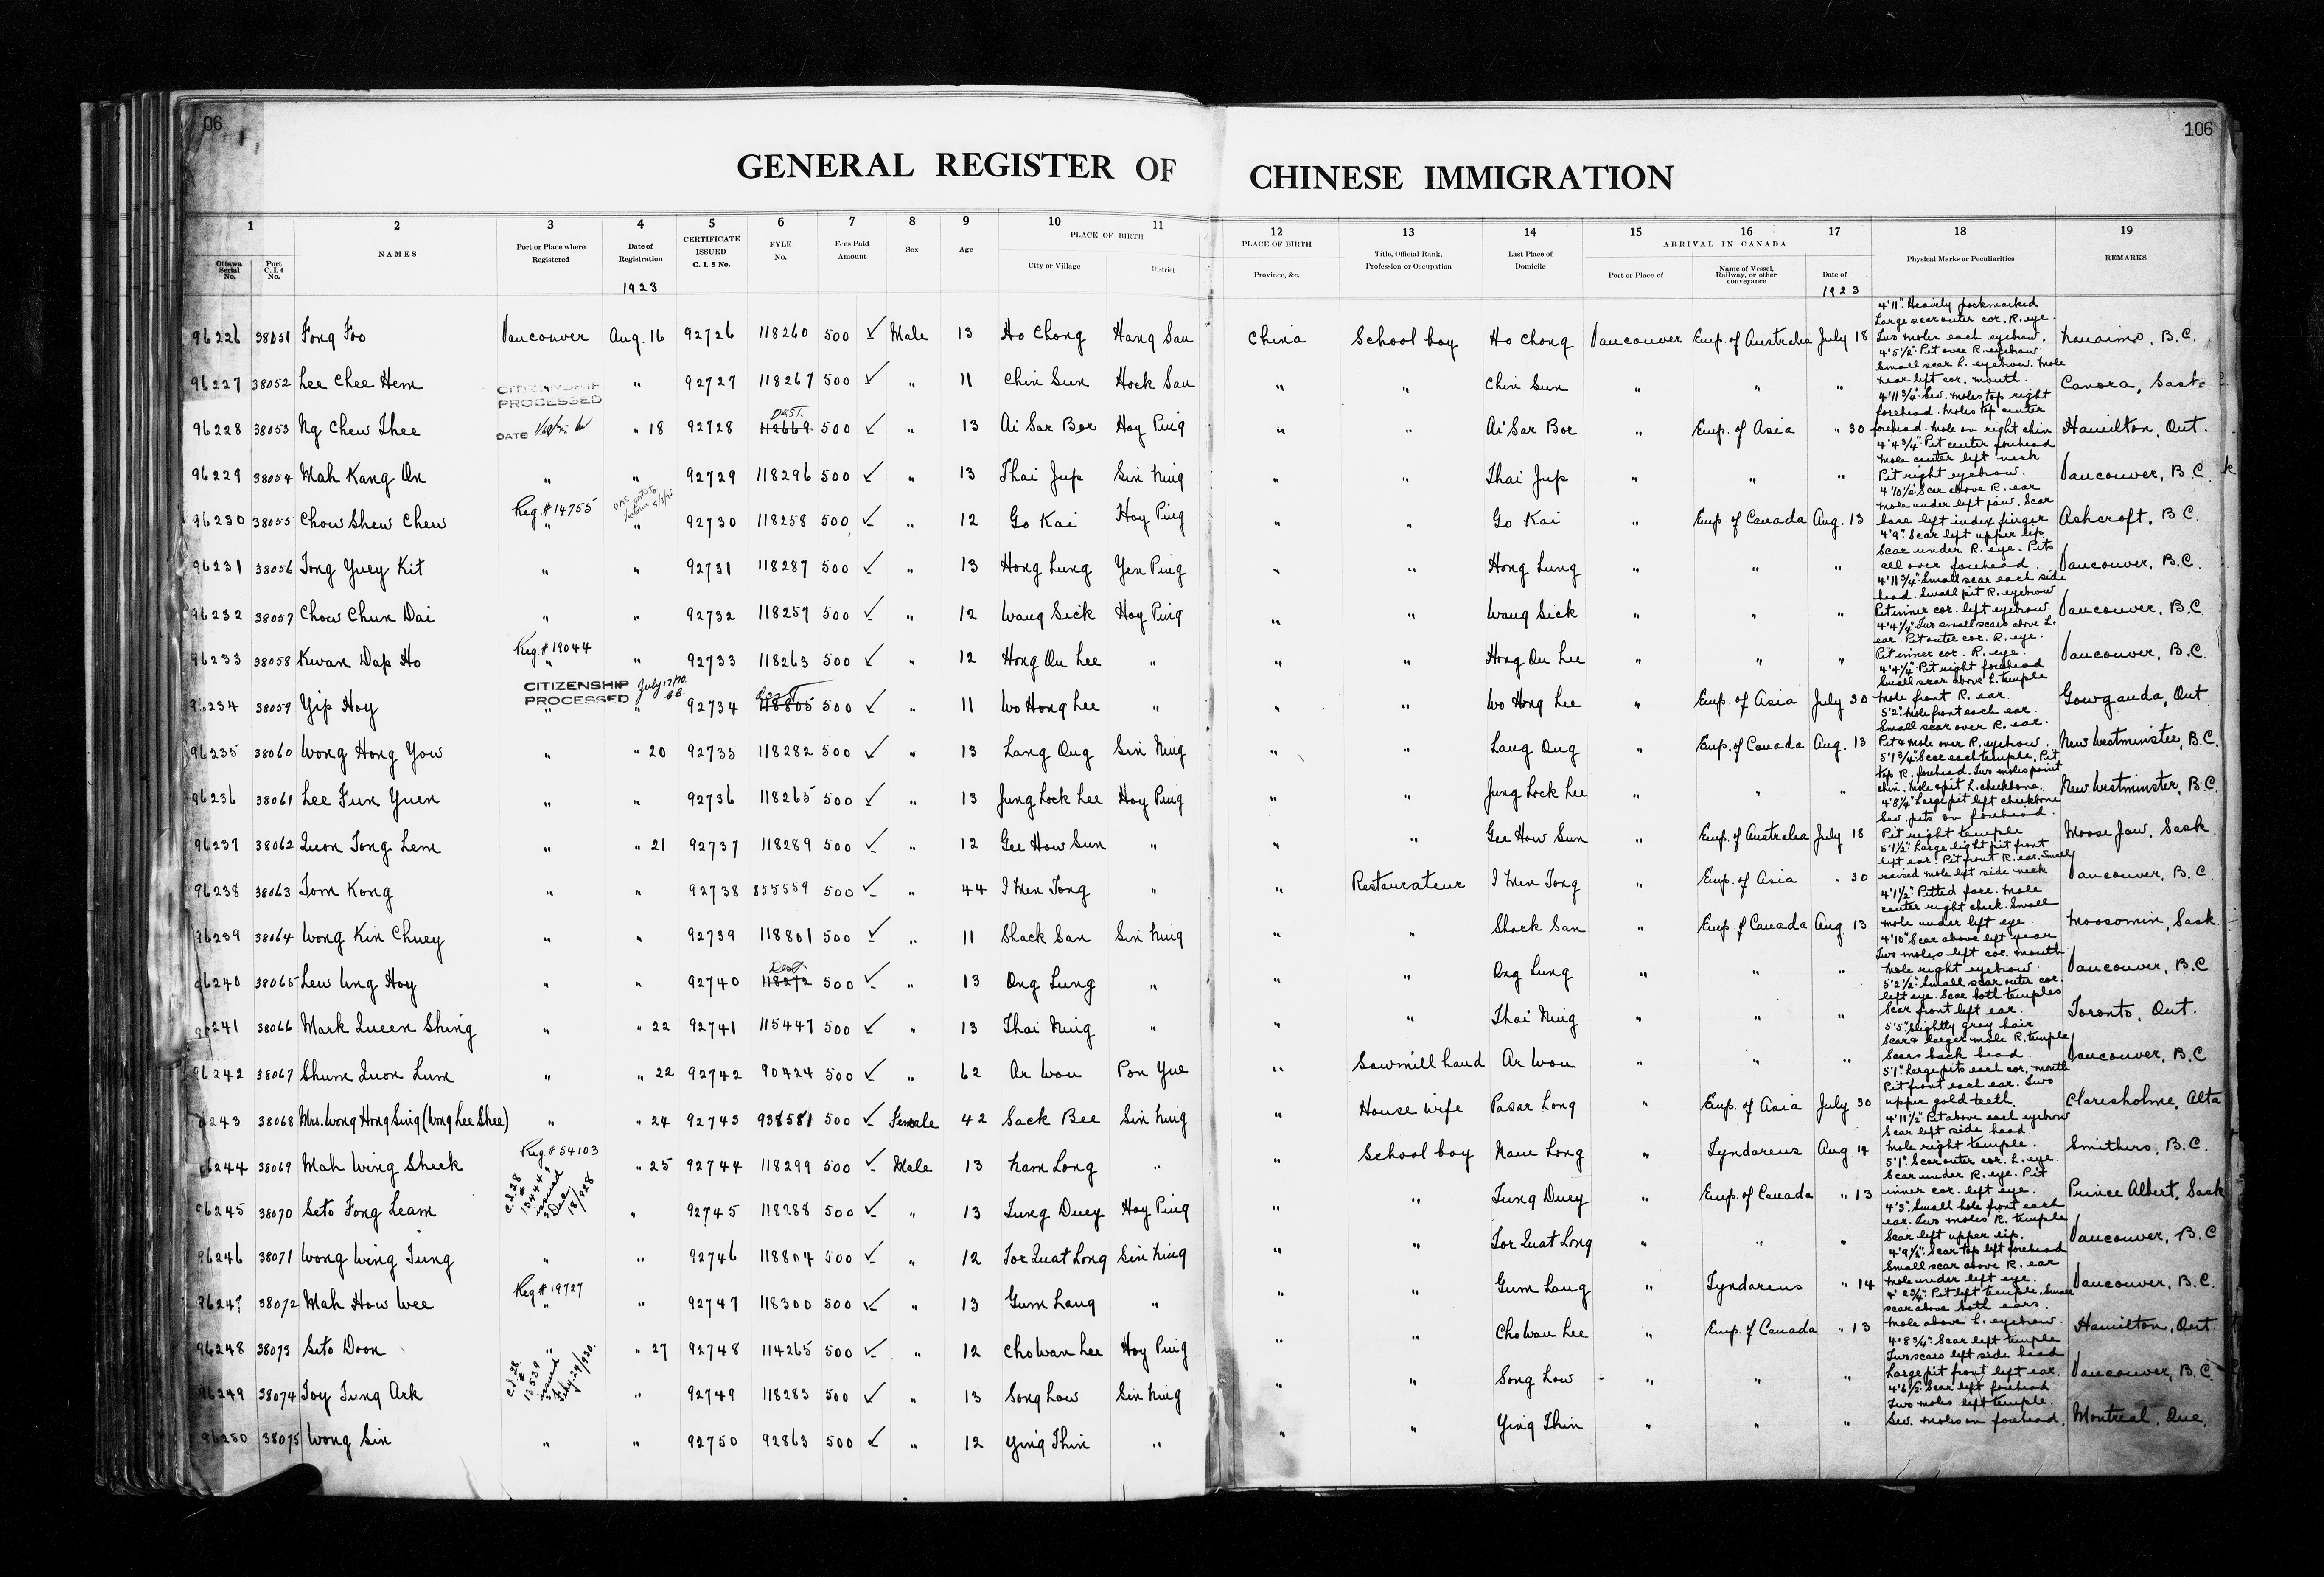 06
106
GENERAL REGISTER OF CHINESE IMMIGRATION
1 2 3 4 5 6 7 8 9 10 11 12 13 14 15 16 17 18 19
Ottawa Serial No. Port C.I.4 No. NAMES Port or Place where Registered Date of Registration CERTIFICATE ISSUED C. I. 5 No. FYLE No. Fees Paid Amount Sex Age PLACE OF BIRTH City or Village District PLACE OF BIRTH Province, &c. Title, Official Rank, Profession or Occupation Last Place of Domicile ARRIVAL IN CANADA Port or Place of Name of Vessel, Railway, or other conveyance Date of Physical Marks or Peculiarities REMARKS
1923 1923
96226 38051 Fong Foo Vancouver Aug. 16 92726 118260 500 ✓ Male 13 Ho Chong Hang San China School boy Ho Chong Vancouver Emp. of Australia July 18 4'11" Heavily pockmarked Large scar outer cor. R. eye. Two moles each eyebrow. Nanaimo, B.C.
96227 38052 Lee Chee Hem " " 92727 118267 500 ✓ " 11 Chin Sun Hock San " " Chin Sun " " " 4'5½" Pit over R. eyebrow Small scar L. eyebrow. Mole near left cor. mouth. Canora, Sask.
CITIZENSHIP PROCESSED
DATE
96228 38053 Ng Chew Thee " 18 92728 118669 Dest. 500 ✓ " 13 Ai Sar Bor Hoy Ping " " Ai Sar Bor " Emp. of Asia " 30 4'11¾" Sev. moles top right forehead. Moles top center forehead. Mole on right chin Hamilton, Ont.
96229 38054 Mah Kang On " " 92729 118296 500 ✓ " 13 Thai Jup Sin Ning " " Thai Jup " " " 4'4¾" Pit center forehead Mole center left neck Pit right eyebrow. Vancouver, B.C.
Reg. # 14755
96230 38055 Chow Shew Chew " " 92730 118258 500 ✓ " 12 Go Kai Hoy Ping " " Go Kai " Emp of Canada Aug. 13 4'10½" Scar above R. ear Mole under left jaw. Scar base left index finger Ashcroft, B.C.
96231 38056 Tong Yuey Kit " " 92731 118287 500 ✓ " 13 Hong Lung Yen Ping " " Hong Lung " " " 4'9" Scar left upper lip Scar under R. eye. Pits all over forehead. Vancouver, B.C.
96232 38057 Chow Chun Dai " " 92732 118257 500 ✓ " 12 Wang Sick Hoy Ping " " Wang Sick " " " 4'11¾" Small scar each side head. Small pit R. eyebrow Pit inner cor. left eyebrow. Vancouver, B.C.
Reg. # 19044
96233 38058 Kwan Dap Ho " " 92733 118263 500 ✓ " 12 Hong On Lee " " " Hong On Lee " " " 4'4¼" Two small scars above L. ear. Pit outer cor. R. eye. Pit inner cor. R. eye. Vancouver, B.C.
CITIZENSHIP PROCESSED July 17/70
96234 38059 Yip Hoy " " 92734 118805 Dest 500 ✓ " 11 Wo Hong Lee " " " Wo Hong Lee " Emp. of Asia July 30 4'4¼" Pit right forehead Small scar above L. temple Mole front R. ear. Gowganda, Ont
96235 38060 Wong Hong Yow " " 20 92735 118282 500 ✓ " 13 Lang Ong Sin Ning " " Lang Ong " Emp. of Canada Aug. 13 5'2" Mole front each ear. Small scar over R. ear. Pit & mole over R. eyebrow. New Westminster, B.C.
96236 38061 Lee Fun Yuen " " 92736 118265 500 ✓ " 13 Jung Lock Lee Hoy Ping " " Jung Lock Lee " " " 5'1¾" Scar each temple, Pit top R. forehead. Two moles point chin. Mole & pit L. cheekbone. New Westminster, B.C.
96237 38062 Quon Tong Lem " " 21 92737 118289 500 ✓ " 12 Gee How Sun " " " Gee How Sun " Emp. of Australia July 18 4'8¼" Large pit left cheekbone Sev. pits on forehead. Pit right temple Moose Jaw, Sask.
96238 38063 Tom Kong " " 92738 835559 500 ✓ " 44 I Men Tong " " Restaurateur I Men Tong " Emp. of Asia " 30 5'1½" Large light pit front left ear. Pit front R. ear. Small raised mole left side neck Vancouver, B.C.
96239 38064 Wong Kin Chuey " " 92739 118801 500 ✓ " 11 Shack San Sin Ning " " Shack San " Emp. of Canada Aug 13 4'1½" Pitted fore. Mole center right cheek. Small mole under left eye Moosomin, Sask.
96240 38065 Lew Ung Hoy " " 92740 118272 Dest. 500 ✓ " 13 Ong Lung " " " Ong Lung " " " 4'10" Scar above left year Two moles left cor. mouth Mole right eyebrow. Vancouver, B.C
96241 38066 Mark Queen Shing " " 22 92741 115447 500 ✓ " 13 Thai Ning " " " Thai Ning " " " 5'2½" Small scar outer cor. left eye. Scar both temples Scar front left ear. Toronto, Ont.
96242 38067 Shum Quon Lum " " 22 92742 90424 500 ✓ " 62 Ar Wou Pon Yue " Sawmill hand Ar Wou " " " 5'5" Slightly gray hair Scar & larger mole R. temple Scars back head. Vancouver, B.C
96243 38068 Mrs. Wong Hong Sing (Wong Lee Shee) " " 24 92743 938581 500 ✓ Female 42 Sack Bee Sin Ning " House wife Pasar Long " Emp. of Asia July 30 5'1" Large pits each cor. mouth Pit front each ear. Two upper gold teeth. Claresholme, Alta
Reg # 54103
96244 38069 Mah Wing Sheek " 25 92744 118299 500 ✓ Male 13 Nam Long " School boy Nam Long " Tyndareus Aug. 14 4'11½" Pit above each eyebrow Scar left side head Mole right temple. Smithers, B.C.
C.I. 28 # 13444 issued Dec 18/1928
96245 38070 Seto Fong Leam " 92745 118288 500 ✓ " 13 Tung Duey Hoy Ping " " Tung Duey " Emp. of Canada " 13 5'1" Scar outer cor. L. eye. Scar under R. eye. Pit inner cor. left eye. Prince Albert, Sask
96246 38071 Wong Wing Tung " " 92746 118804 500 ✓ " 12 Tor Quat Long Sin Ning " " Tor Quat Long " " " 4'3" Small hole front each ear. Two moles R. temple Scar left upper lip. Vancouver, B.C
Reg # 19727
96247 38072 Mah How Wee " " 92747 118300 500 ✓ " 13 Gum Lang " " " Gum Lang " Tyndareus " 14 4'9½" Scar top left forehead Small scar above R. ear Mole under left eye. Vancouver, B.C.
96248 38073 Seto Doon " " 27 92748 114265 500 ✓ " 12 Cho Wan Lee Hoy Ping " " Cho Wan Lee " Emp. of Canada " 13 4'2¾" Pit left temple, Small scar above both ears. Mole above L. eyebrow. Hamilton, Ont.
C.I. 28 # 13539 issued Feby. 24/1930.
96249 38074 Toy Tung Ark " 92749 118283 500 ✓ " 13 Song Low Sin Ning " " Song Low " " " 4'8¾" Scar left temple Two scars left side head Large pit front left ear. Vancouver, B.C.
96250 38075 Wong Sin " " 92750 92863 500 ✓ " 12 Ying Thin " " " Ying Thin " " " 4'6½" Scar left forehead Two moles left temple. Sev. moles on forehead. Montreal, Que.